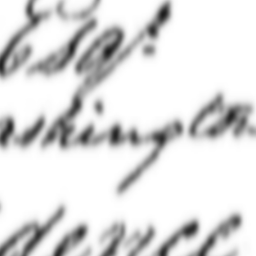 Esq:
ashington
dence